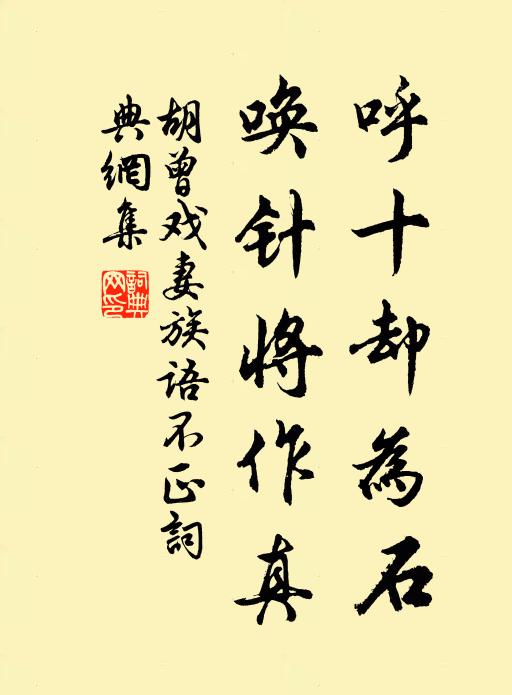 呼十却為石
唤针將作真
胡曾戏妻族语不正詞
典網集
詞典
网印